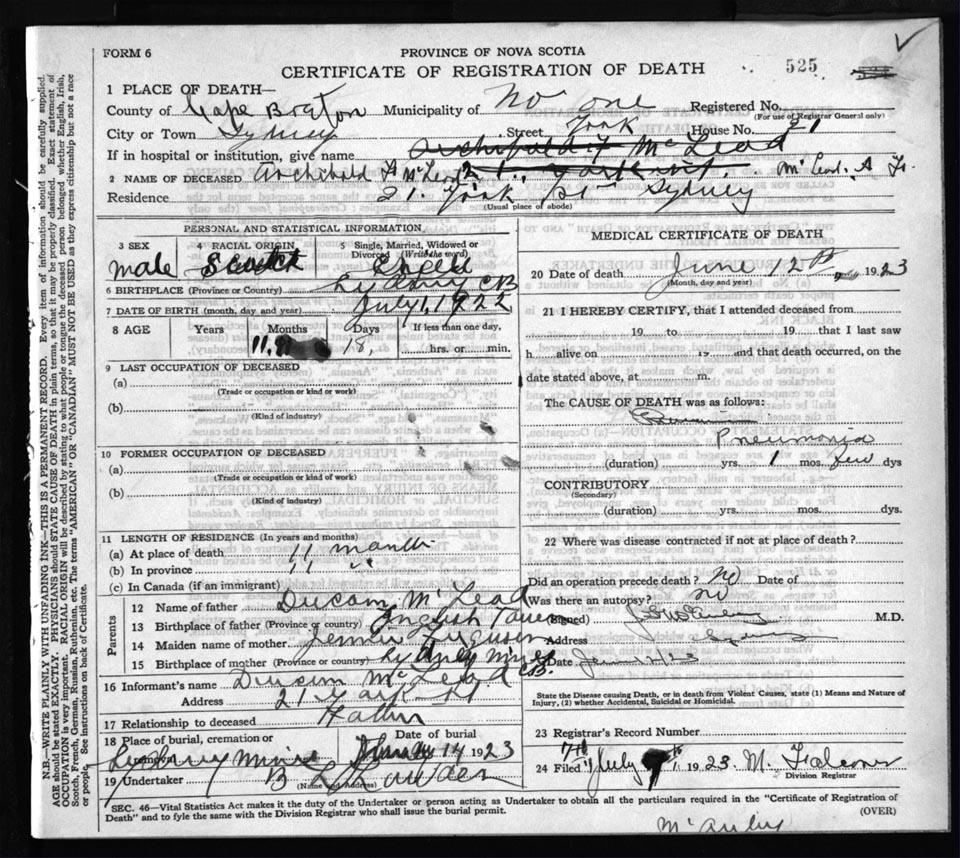 FORM 6
PROVINCE OF NOVA SCOTIA
CERTIFICATE OF REGISTRATION OF DEATH
525
1 PLACE OF DEATH—
County of Cape Breton Municipality of No one Registered No.
(For use of Registrar General only)
City or Town Sydney Street York House No. 21
If in hospital or institution, give name Archibald McLeod
2 NAME OF DECEASED Archibald McLeod McLeod. A
Residence 21 York St Sydney
(Usual place of abode)
PERSONAL AND STATISTICAL INFORMATION
3 SEX
male
4 RACIAL ORIGIN
Scotch
5 Single, Married, Widowed or Divorced (Write the word)
Single
6 BIRTHPLACE (Province or Country) Sydney CB
7 DATE OF BIRTH (month, day and year) July 1, 1922
8 AGE Years Months Days If less than one day,
11 18, hrs. or min.
9 LAST OCCUPATION OF DECEASED
(a)
(Trade or occupation or kind or work)
(b)
(Kind of industry)
10 FORMER OCCUPATION OF DECEASED
(a)
(Trade or occupation or kind of work)
(b)
(Kind of industry)
11 LENGTH OF RESIDENCE (In years and months)
(a) At place of death 11 month
(b) In province 11 "
(c) In Canada (if an immigrant)
Parents
12 Name of father Duncan McLeod
13 Birthplace of father (Province or country) English Town
14 Maiden name of mother Jennie Ferguson
15 Birthplace of mother (Province or country) Sydney Mines CB.
16 Informant's name Duncan McLeod
Address 21 York St
17 Relationship to deceased Father
18 Place of burial, cremation or Date of burial
Sydney Mines June 14 1923
19 Undertaker
(Name and Address)
MEDICAL CERTIFICATE OF DEATH
20 Date of death June 12th 1923
(Month, day and year)
21 I HEREBY CERTIFY, that I attended deceased from
19 to 19 that I last saw
h alive on 19 and that death occurred, on the
date stated above, at m.
The CAUSE OF DEATH was as follows:
Pneumonia
(duration) yrs. 1 mos. few dys
CONTRIBUTORY
(Secondary)
(duration) yrs. mos. dys.
22 Where was disease contracted if not at place of death?
Did an operation precede death? No Date of
Was there an autopsy? no
(Signed) M.D.
Address Sydney
Date
State the Disease causing Death, or in death from Violent Causes, state (1) Means and Nature of
Injury, (2) whether Accidental, Suicidal or Homicidal.
23 Registrar's Record Number
24 Filed July 1923 M.
Division Registrar
SEC. 46—Vital Statistics Act makes it the duty of the Undertaker or person acting as Undertaker to obtain all the particulars required in the "Certificate of Registration of
Death" and to fyle the same with the Division Registrar who shall issue the burial permit.
(OVER)
N.B.—WRITE PLAINLY WITH UNFADING INK—THIS IS A PERMANENT RECORD. Every item of information should be carefully supplied.
AGE should be stated EXACTLY. PHYSICIANS should STATE CAUSE OF DEATH in plain terms, so that it may be properly classified. Exact statement of
OCCUPATION is very important. RACIAL ORIGIN will be described by stating to what people or tongue the deceased person belonged whether English, Irish,
Scotch, French, German, Russian, Ruthenian, etc. The terms "AMERICAN" OR "CANADIAN" MUST NOT BE USED as they express citizenship but not a race
or people. See instructions on back of Certificate.